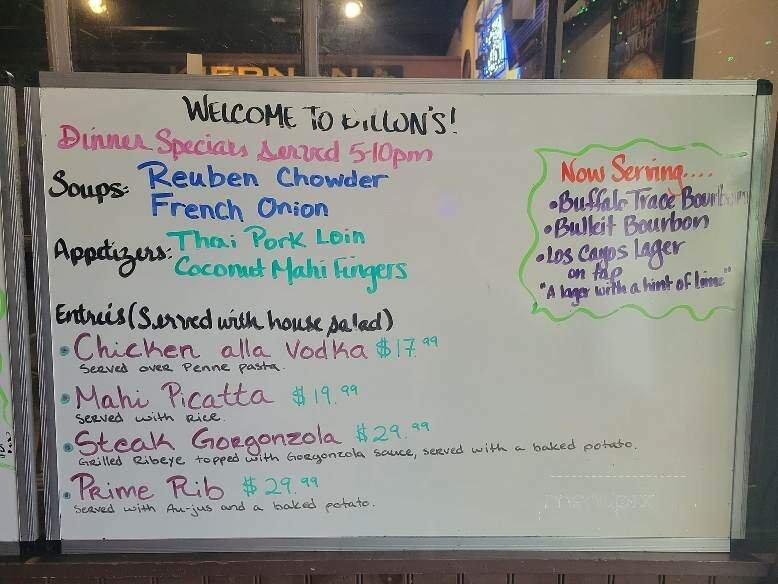 WELCOME TO DILLON'S!
Dinner Specials Served 5-10pm
Soups: Reuben Chowder
French Onion
Appetizers: Thai Pork Loin
Coconut Mahi Fingers
Entreés (Served with house salad)
• Chicken alla Vodka $17.99
Served over Penne pasta.
• Mahi Picatta $19.99
Served with Rice.
• Steak Gorgonzola $29.99
Grilled Ribeye topped with Gorgonzola sauce, served with a baked potato.
• Prime Rib $29.99
Served with Au-jus and a baked potato.
Now Serving....
• Buffalo Trace Bourbon
• Bulleit Bourbon
• Los Cayos Lager
on tap
"A lager with a hint of lime"